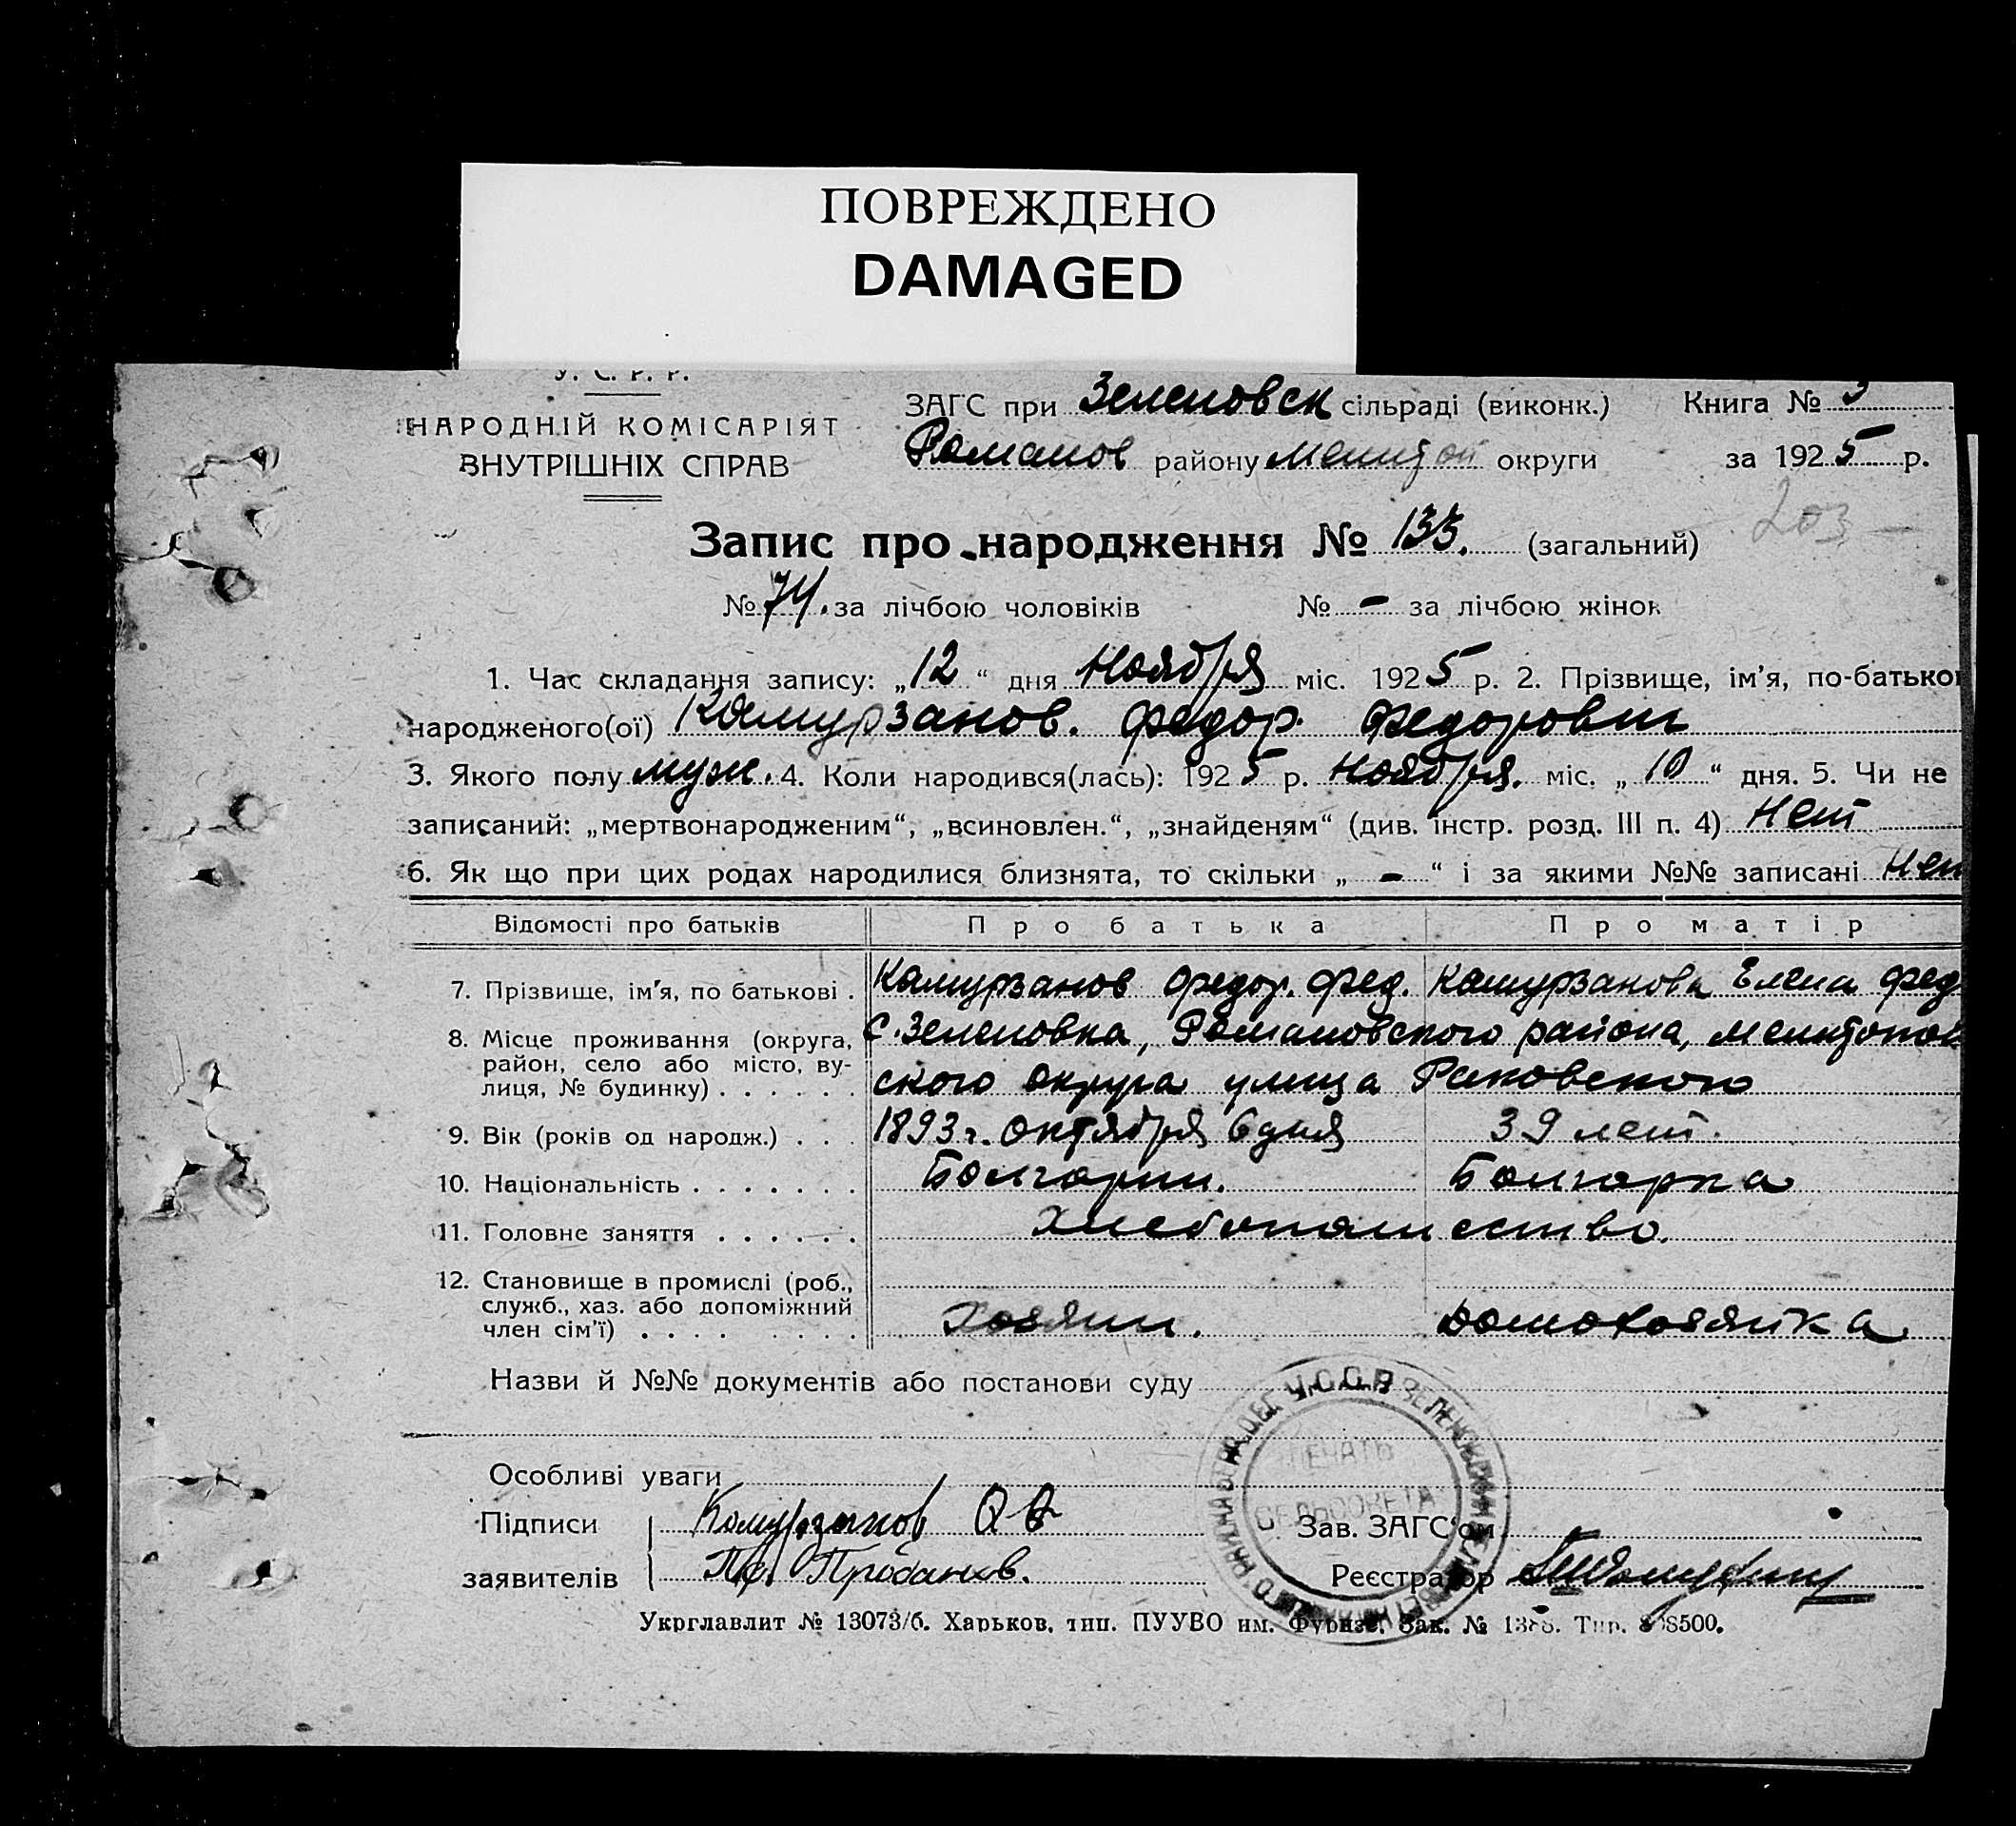 ПОВРЕЖДЕНО
DAMAGED
У. С. Р. Р.
НАРОДНІЙ КОМІСАРІЯТ
ВНУТРІШНІХ СПРАВ
ЗАГС при Зеленовск сільраді (виконк.) Книга №
Романов району Мелитоп округи за 1925 р.
203
Запис про народження № 133. (загальний)
№ 74. за лічбою чоловіків № - за лічбою жінок
1. Час складання запису: „12“ дня Ноября міс. 1925 р. 2. Прізвище, ім'я, по-батьков
народженого(ої) Камурзанов. Федор. Федорович
3. Якого полу муж. 4. Коли народився(лась): 1925 р. Ноября. міс. „10“ дня. 5. Чи не
записаний: „мертвонародженим“, „всиновлен.“, „знайденям“ (див. інстр. розд. III п. 4) Нет
6. Як що при цих родах народилися близнята, то скільки „-“ і за якими №№ записані Нет
Відомості про батьків Про батька Про матір
7. Прізвище, ім'я, по батькові . Камурзанов Федор. Фед. Камурзанова Елена Фед
8. Місце проживання (округа, С. Зеленовка, Романовского района, Мелитополь
район, село або місто, ву-
лиця, № будинку) . . . . . . ского округа улица Раковского
9. Вік (років од народж.) . . . 1893 г. октября 6 дня 39 лет.
10. Національність . . . . . . . Болгарин. Болгарка
11. Головне заняття . . . . . . Хлебопашество.
12. Становище в промислі (роб.,
служб., хаз. або допоміжний
член сім'ї) . . . . . . . . . Хозяин. Домохозяйка
Назви й №№ документів або постанови суду
Особливі уваги
Підписи Камурзанов
Зав. ЗАГС'ом
заявителів Реєстратор
У.С.С.Р. ЗЕЛЕНОВСКИЙ
ПЕЧАТЬ
СЕЛЬСОВЕТА
Укрглавлит № 13073/б. Харьков, тип. ПУУВО им. Фрунзе. Зак. №